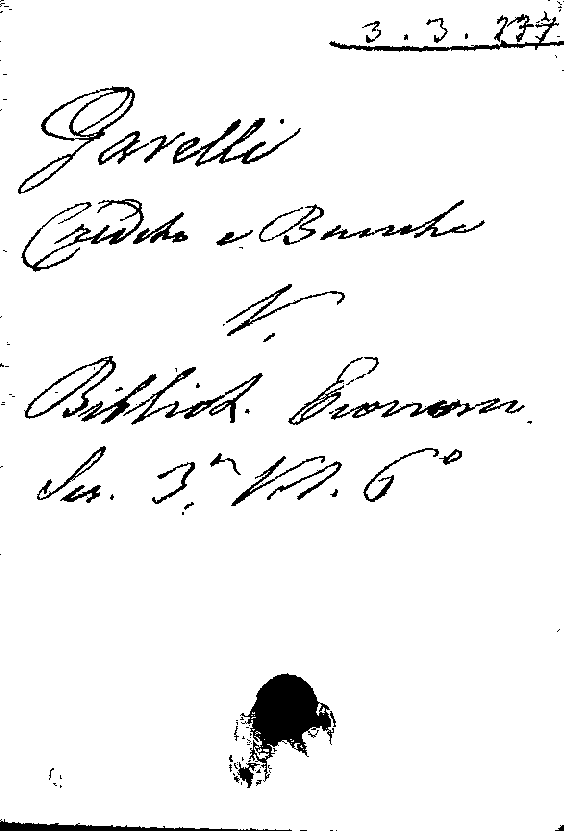 3. 3. 277
Garelli
Credito e Banche
V.
Bibliot. Econom.
Ser. 3.a Vol. 6o